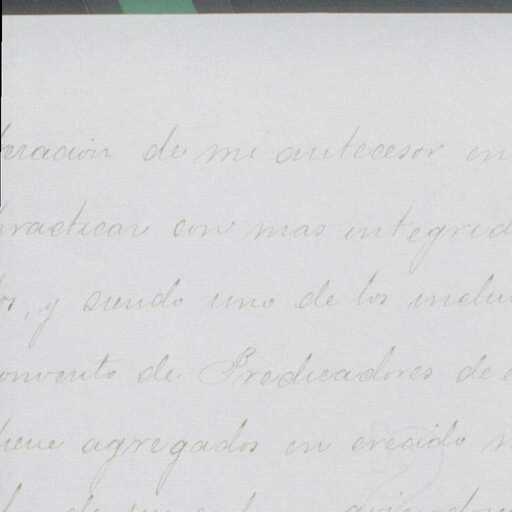 de mi antecesor en
practicar con mas integrid
los, y siendo uno de los inclu
convento de Predicadores de
tiene agregados en crecido